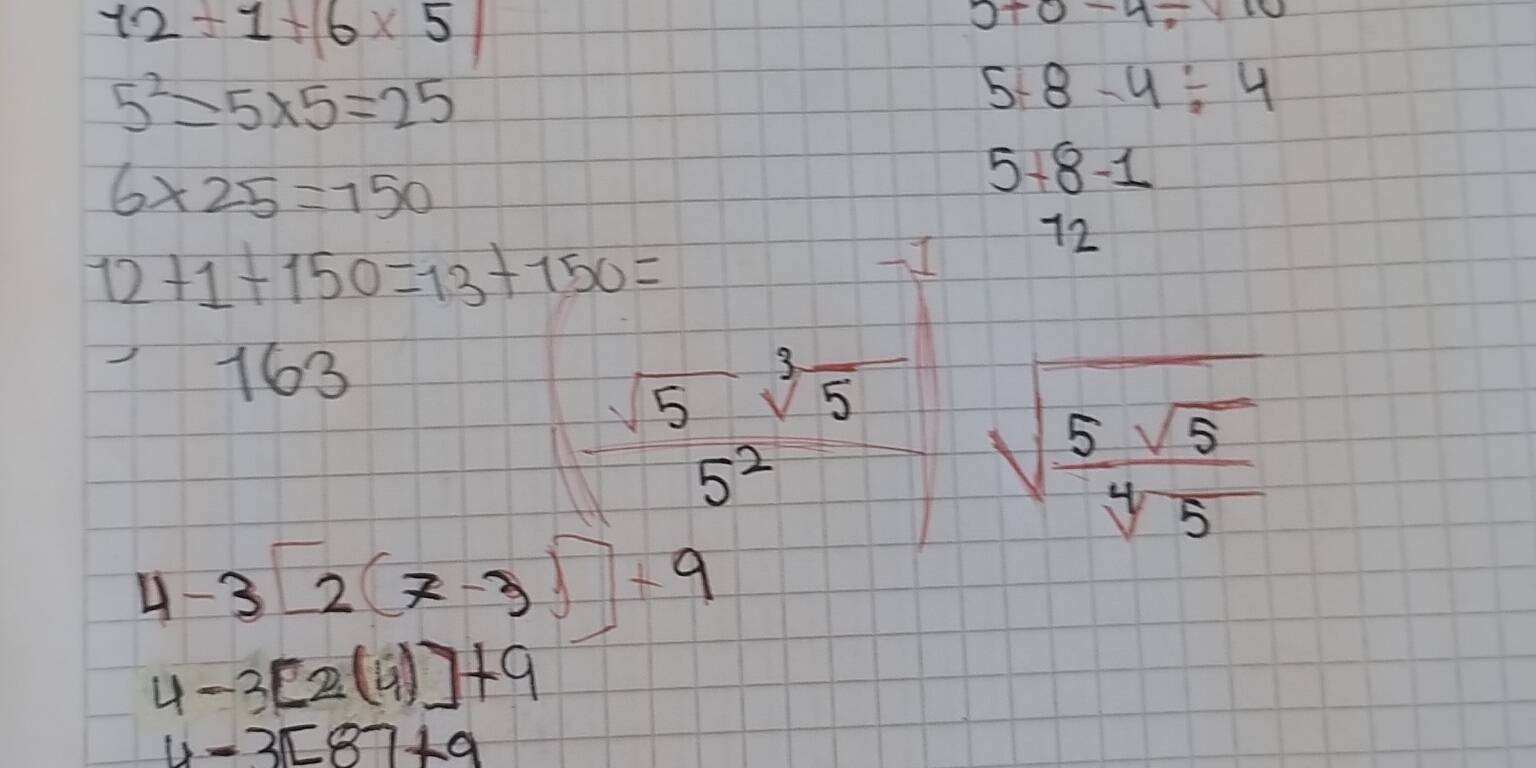 12 + 1 + (6 × 5)
5² = 5×5=25
6×25=150
12+1+150=13+150=
163
5+8-4÷√16
5+8-4÷4
5+8-1
12
(√5 ∛5 / 5²)⁻¹
√(5 √5 / ∜5)
4-3[2(7-3)]+9
4-3[2(4)]+9
4-3[8]+9